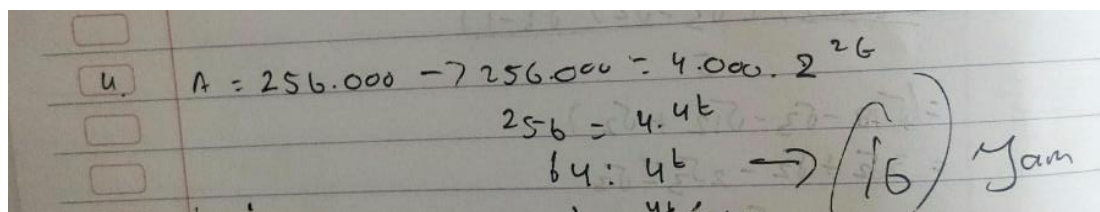 4. A = 256.000 -> 256.000 = 4.000. 2^2t
256 = 4.4^t
64 = 4^t -> 16 Jam